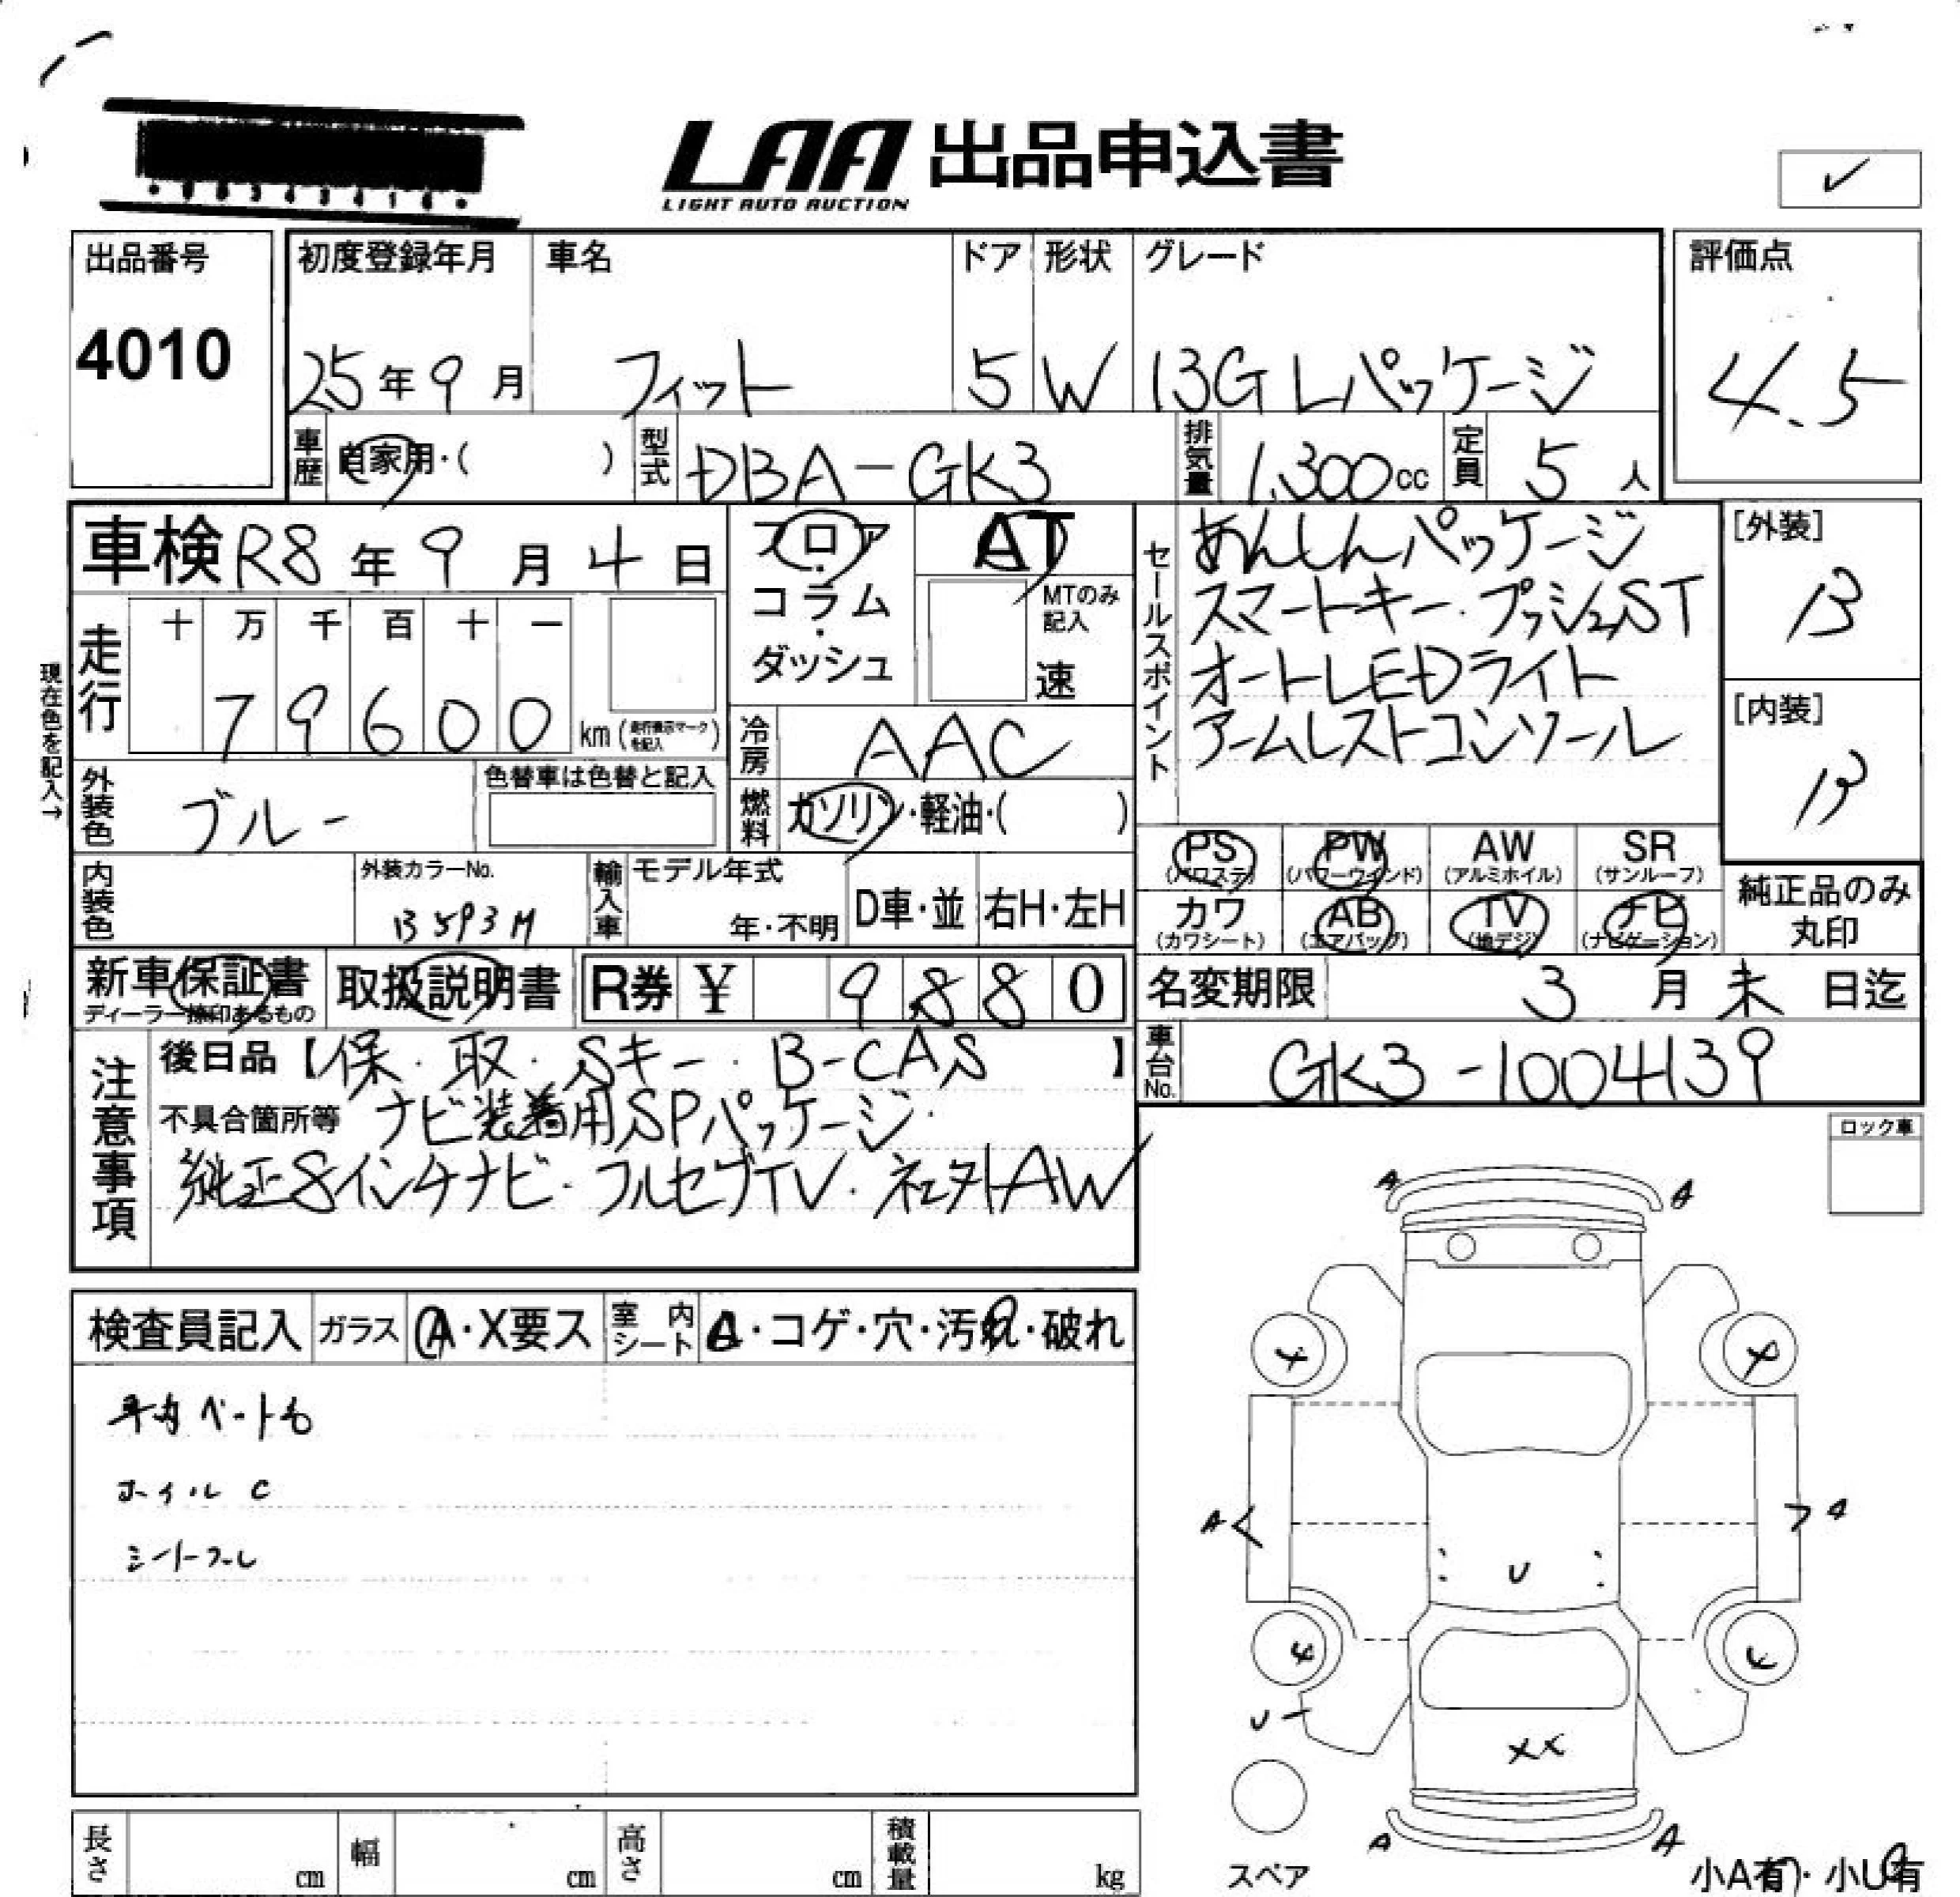 LAA 出品申込書
LIGHT AUTO AUCTION
✓
出品番号
4010
初度登録年月
25年9月
車名
フィット
ドア
5
形状
W
グレード
13G Lパッケージ
評価点
4.5
車歴 自家用・( )
型式 DBA-GK3
排気量 1,300cc
定員 5人
車検 R8年9月4日
フロア・コラム・ダッシュ
AT
MTのみ記入
速
セールスポイント
あんしんパッケージ
スマートキー・プッシュST
オートLEDライト
アームレストコンソール
[外装]
B
[内装]
B
現在色を記入→
走行
十 万 千 百 十 一
7 9 6 0 0
km (走行表示マークを記入)
冷房 AAC
外装色 ブルー
色替車は色替と記入
燃料 ガソリン・軽油・( )
内装色
外装カラーNo.
B593M
輸入車
モデル年式
年・不明
D車・並
右H・左H
PS (パワステ)
PW (パワーウインド)
AW (アルミホイル)
SR (サンルーフ)
カワ (カワシート)
AB (エアバッグ)
TV (地デジ)
ナビ (ナビゲーション)
純正品のみ
丸印
新車保証書
ディーラー捺印あるもの
取扱説明書
R券 ¥ 9880
名変期限 3月末日迄
注意事項
後日品【保・取・Sキー・B-CAS】
不具合箇所等 ナビ装着用SPパッケージ・
純正8インチナビ・フルセグTV・社外AW
車台No. GK3-1004139
ロック車
検査員記入
ガラス A・X要ス
室内シート A・コゲ・穴・汚れ・破れ
ホイル C
A A
A A
U
U
XX
A A
スペア
小A有・小U有
長さ cm
幅 cm
高さ cm
積載量 kg